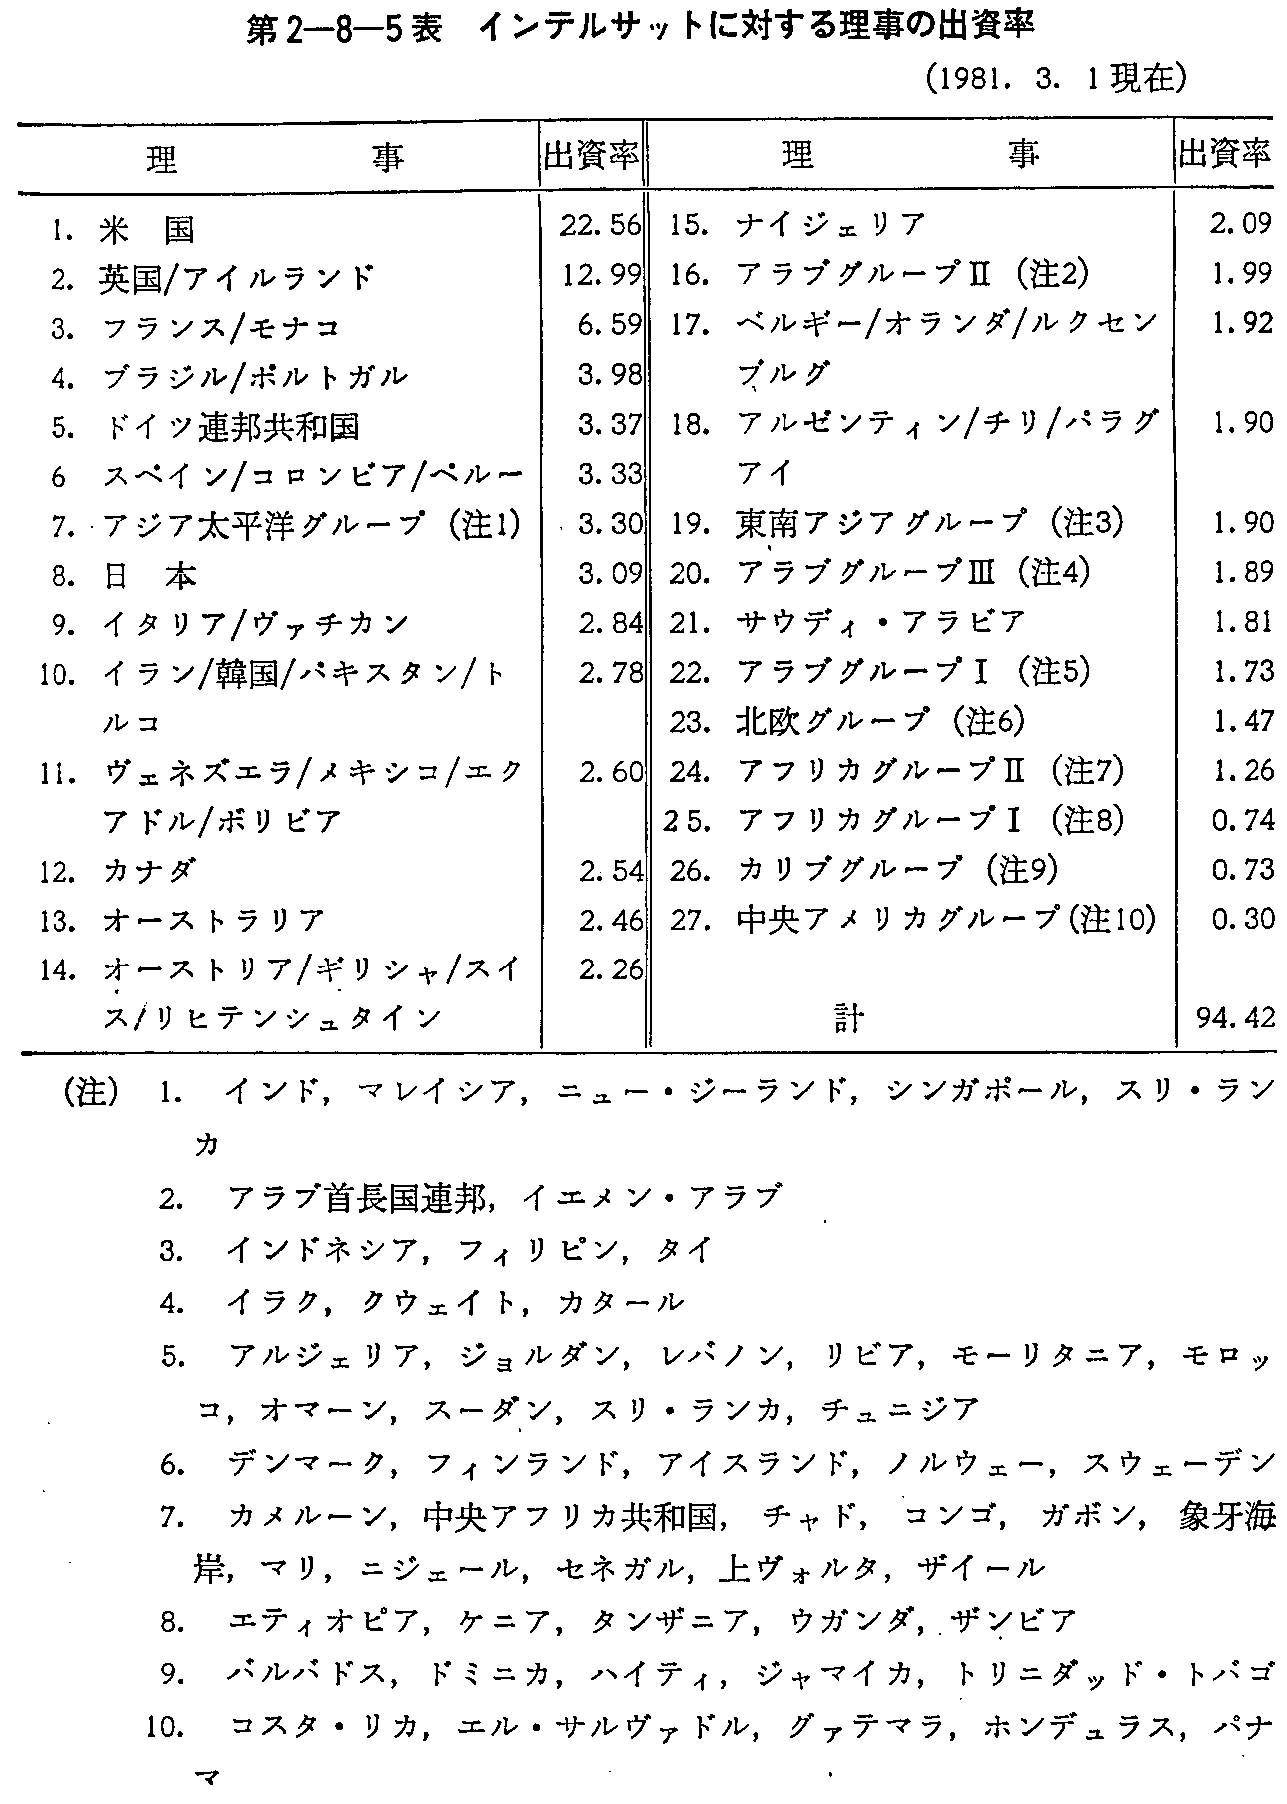 第2―8―5表 インテルサットに対する理事の出資率
(1981. 3. 1現在)
理事 出資率 理事 出資率
1. 米国 22.56
2. 英国/アイルランド 12.99
3. フランス/モナコ 6.59
4. ブラジル/ポルトガル 3.98
5. ドイツ連邦共和国 3.37
6 スペイン/コロンビア/ペルー 3.33
7. アジア太平洋グループ (注1) 3.30
8. 日本 3.09
9. イタリア/ヴァチカン 2.84
10. イラン/韓国/パキスタン/ト 2.78
ルコ
11. ヴェネズエラ/メキシコ/エク 2.60
アドル/ボリビア
12. カナダ 2.54
13. オーストラリア 2.46
14. オーストリア/ギリシャ/スイ 2.26
ス/リヒテンシュタイン
15. ナイジェリア 2.09
16. アラブグループⅡ (注2) 1.99
17. ベルギー/オランダ/ルクセン 1.92
ブルグ
18. アルゼンティン/チリ/パラグ 1.90
アイ
19. 東南アジアグループ (注3) 1.90
20. アラブグループⅢ (注4) 1.89
21. サウディ・アラビア 1.81
22. アラブグループⅠ (注5) 1.73
23. 北欧グループ (注6) 1.47
24. アフリカグループⅡ (注7) 1.26
25. アフリカグループⅠ (注8) 0.74
26. カリブグループ (注9) 0.73
27. 中央アメリカグループ(注10) 0.30
計 94.42
(注) 1. インド, マレイシア, ニュー・ジーランド, シンガポール, スリ・ラン
カ
2. アラブ首長国連邦, イエメン・アラブ
3. インドネシア, フィリピン, タイ
4. イラク, クウェイト, カタール
5. アルジェリア, ジョルダン, レバノン, リビア, モーリタニア, モロッ
コ, オマーン, スーダン, スリ・ランカ, チュニジア
6. デンマーク, フィンランド, アイスランド, ノルウェー, スウェーデン
7. カメルーン, 中央アフリカ共和国, チャド, コンゴ, ガボン, 象牙海
岸, マリ, ニジェール, セネガル, 上ヴォルタ, ザイール
8. エティオピア, ケニア, タンザニア, ウガンダ, ザンビア
9. バルバドス, ドミニカ, ハイティ, ジャマイカ, トリニダッド・トバゴ
10. コスタ・リカ, エル・サルヴァドル, グァテマラ, ホンデュラス, パナ
マ